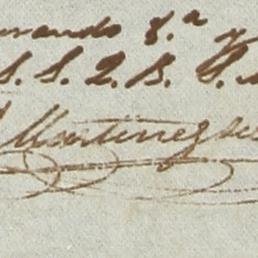 urando 8.ª y
S. S. Q. B. S.
Martinez